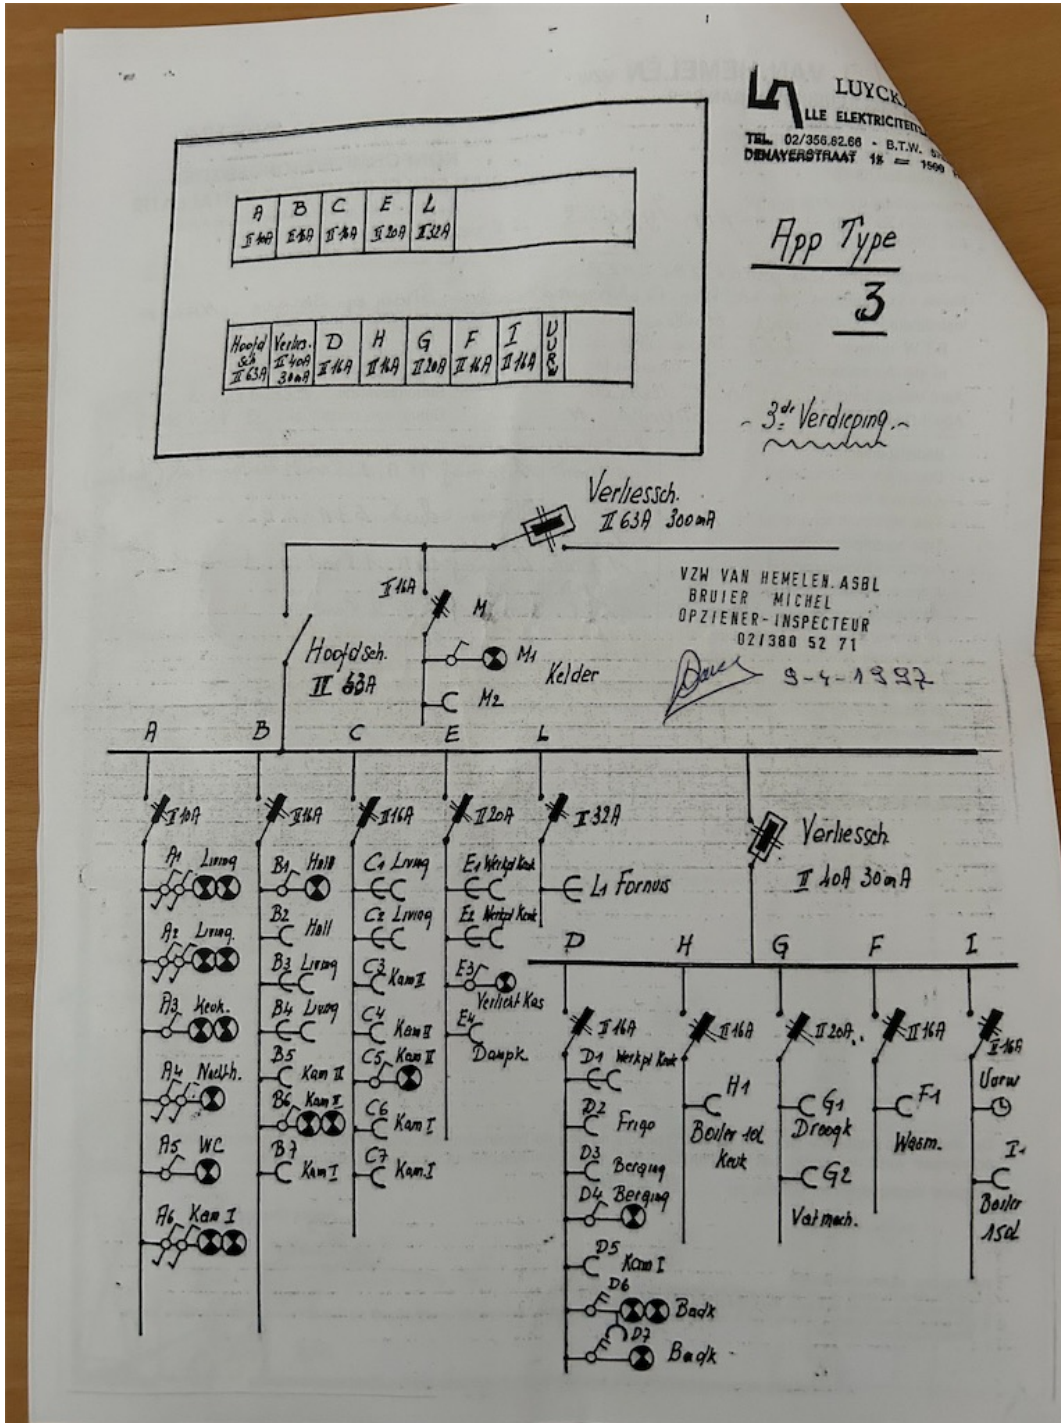 LUYCK
LLE ELEKTRICITEITS
TEL. 02/356.82.66 - B.T.W.
DEMAYERSTRAAT 18 = 1500
App Type
3
3de Verdieping.
A B C E L
II 10A II 16A II 16A II 20A II 32A
Hoofd sch II 63A
Verlies. II 40A 30mA
D II 16A
H II 16A
G II 20A
F II 16A
I II 16A
UURW
Verliessch.
II 63A 300mA
VZW VAN HEMELEN.ASBL
BRUIER MICHEL
OPZIENER-INSPECTEUR
02/380 52 71
9-4-1997
II 16A M
Hoofdsch.
II 63A
M1
Kelder
M2
A B C E L
II 10A II 16A II 16A II 20A II 32A
Verliessch
II 40A 30mA
A1 Living
A2 Living.
A3 Keuk.
A4 Nachth.
A5 WC
A6 Kam I
B1 Hall
B2 Hall
B3 Living
B4 Living
B5 Kam II
B6 Kam II
B7 Kam I
C1 Living
C2 Living
C3 Kam II
C4 Kam II
C5 Kam II
C6 Kam I
C7 Kam.I
E1 Werkpl Keuk
E2 Werkpl Keuk
E3 Verlicht Kas
E4 Dampk.
L1 Fornuis
D H G F I
II 16A II 16A II 20A II 16A II 16A
D1 Werkpl Keuk
D2 Frigo
D3 Berging
D4 Berging
D5 Kam I
D6 Badk
D7
Badk
H1
Boiler 10L
Keuk
G1
Droogk
G2
Vatmach.
F1
Wasm.
Uurw
I1
Boiler
150L